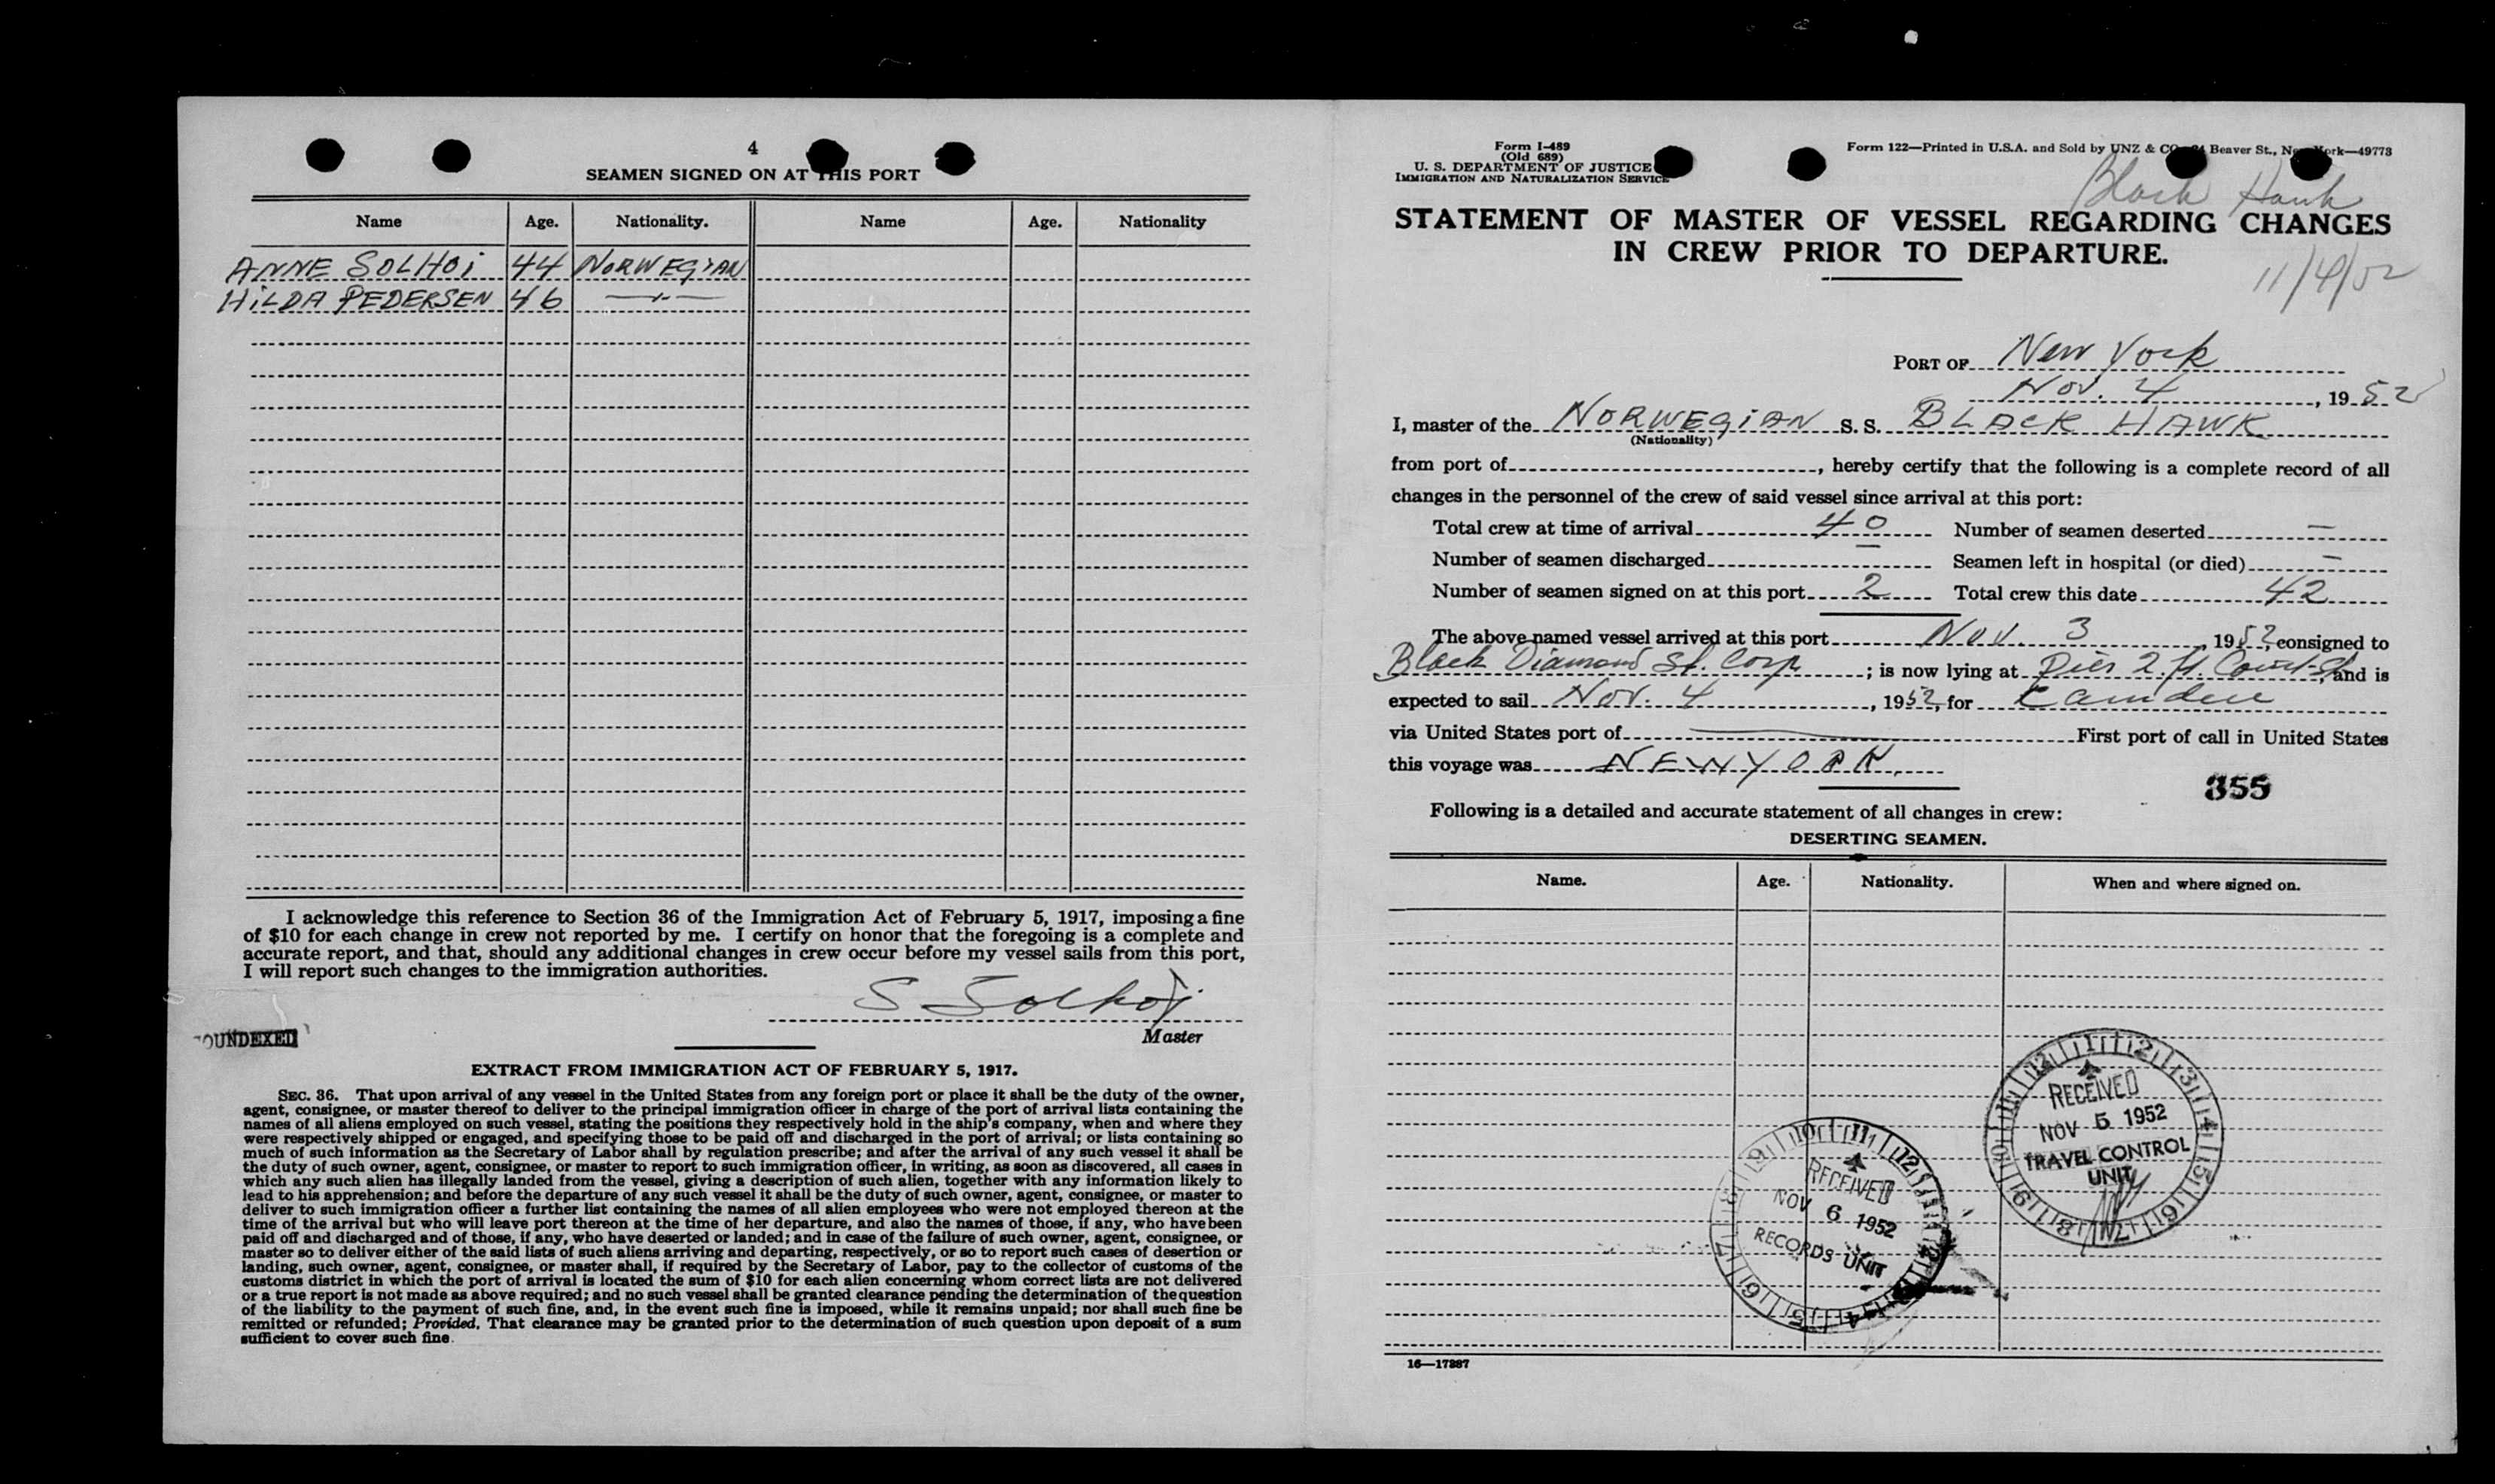 4
SEAMEN SIGNED ON AT THIS PORT
Name Age. Nationality. Name Age. Nationality
ANNE SOLHOi 44 NORWEGiAN
HiLDA PEDERSEN 46 —"—
I acknowledge this reference to Section 36 of the Immigration Act of February 5, 1917, imposing a fine
of $10 for each change in crew not reported by me. I certify on honor that the foregoing is a complete and
accurate report, and that, should any additional changes in crew occur before my vessel sails from this port,
I will report such changes to the immigration authorities.
S Solhoj
Master
OUNDEXED
EXTRACT FROM IMMIGRATION ACT OF FEBRUARY 5, 1917.
SEC. 36. That upon arrival of any vessel in the United States from any foreign port or place it shall be the duty of the owner,
agent, consignee, or master thereof to deliver to the principal immigration officer in charge of the port of arrival lists containing the
names of all aliens employed on such vessel, stating the positions they respectively hold in the ship's company, when and where they
were respectively shipped or engaged, and specifying those to be paid off and discharged in the port of arrival; or lists containing so
much of such information as the Secretary of Labor shall by regulation prescribe; and after the arrival of any such vessel it shall be
the duty of such owner, agent, consignee, or master to report to such immigration officer, in writing, as soon as discovered, all cases in
which any such alien has illegally landed from the vessel, giving a description of such alien, together with any information likely to
lead to his apprehension; and before the departure of any such vessel it shall be the duty of such owner, agent, consignee, or master to
deliver to such immigration officer a further list containing the names of all alien employees who were not employed thereon at the
time of the arrival but who will leave port thereon at the time of her departure, and also the names of those, if any, who have been
paid off and discharged and of those, if any, who have deserted or landed; and in case of the failure of such owner, agent, consignee, or
master so to deliver either of the said lists of such aliens arriving and departing, respectively, or so to report such cases of desertion or
landing, such owner, agent, consignee, or master shall, if required by the Secretary of Labor, pay to the collector of customs of the
customs district in which the port of arrival is located the sum of $10 for each alien concerning whom correct lists are not delivered
or a true report is not made as above required; and no such vessel shall be granted clearance pending the determination of the question
of the liability to the payment of such fine, and, in the event such fine is imposed, while it remains unpaid; nor shall such fine be
remitted or refunded; Provided, That clearance may be granted prior to the determination of such question upon deposit of a sum
sufficient to cover such fine.
Form I-489
(Old 689)
U. S. DEPARTMENT OF JUSTICE
IMMIGRATION AND NATURALIZATION SERVICE
Form 122—Printed in U.S.A. and Sold by UNZ & CO. Beaver St., New York—49773
Black Hawk
STATEMENT OF MASTER OF VESSEL REGARDING CHANGES
IN CREW PRIOR TO DEPARTURE.
11/4/52
PORT OF New York
Nov. 4, 1952
I, master of the NORWEGiAN S. S. BLACK HAWK
(Nationality)
from port of, hereby certify that the following is a complete record of all
changes in the personnel of the crew of said vessel since arrival at this port:
Total crew at time of arrival 40 Number of seamen deserted —
Number of seamen discharged — Seamen left in hospital (or died) —
Number of seamen signed on at this port 2 Total crew this date 42
The above named vessel arrived at this port Nov. 3, 1952, consigned to
Black Diamond St. Corp; is now lying at Pier 2 ft. Court St, and is
expected to sail Nov. 4, 1952, for Camden
via United States port of — First port of call in United States
this voyage was NEW YORK.
355
Following is a detailed and accurate statement of all changes in crew:
DESERTING SEAMEN.
Name. Age. Nationality. When and where signed on.
RECEIVED
NOV 5 1952
TRAVEL CONTROL
UNIT
RECEIVED
NOV 6 1952
RECORDS UNIT
16—17887